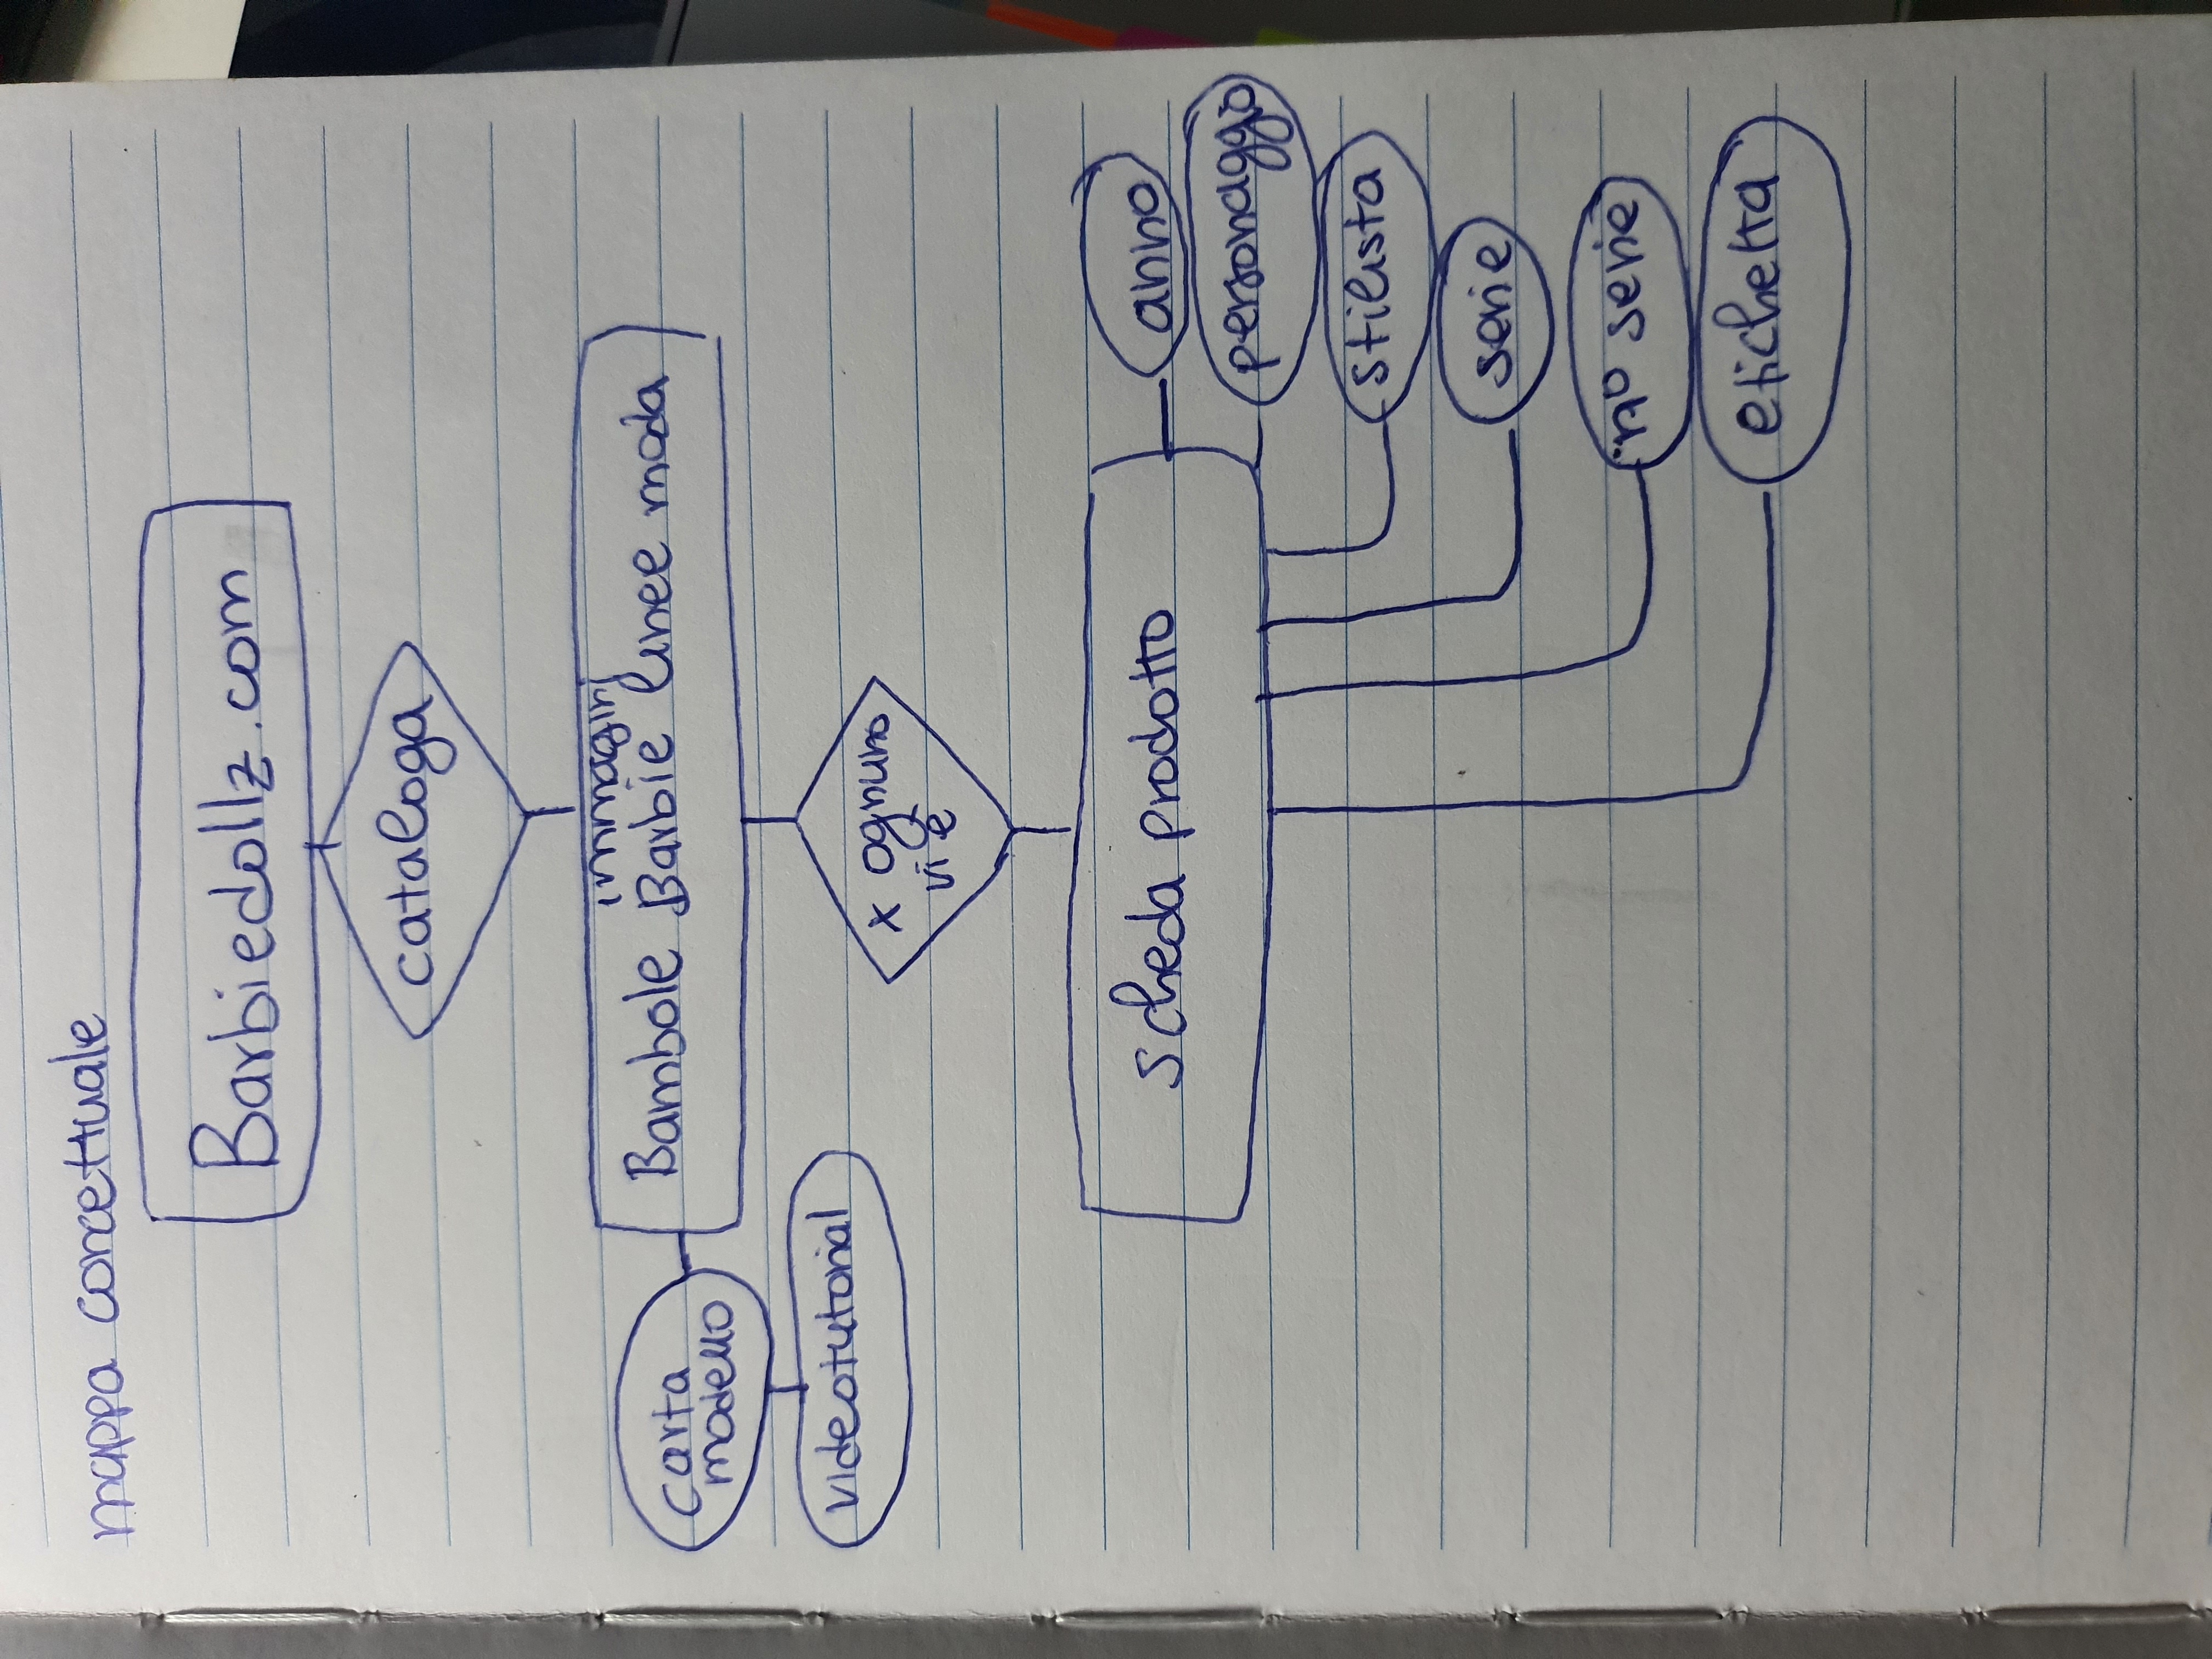 mappa concettuale
Barbiedollz.com
cataloga
immagini
Bambole Barbie linee moda
carta
modello
videotutorial
x ognuno
vi è
scheda prodotto
anno
personaggo
stilista
serie
n° serie
etichetta